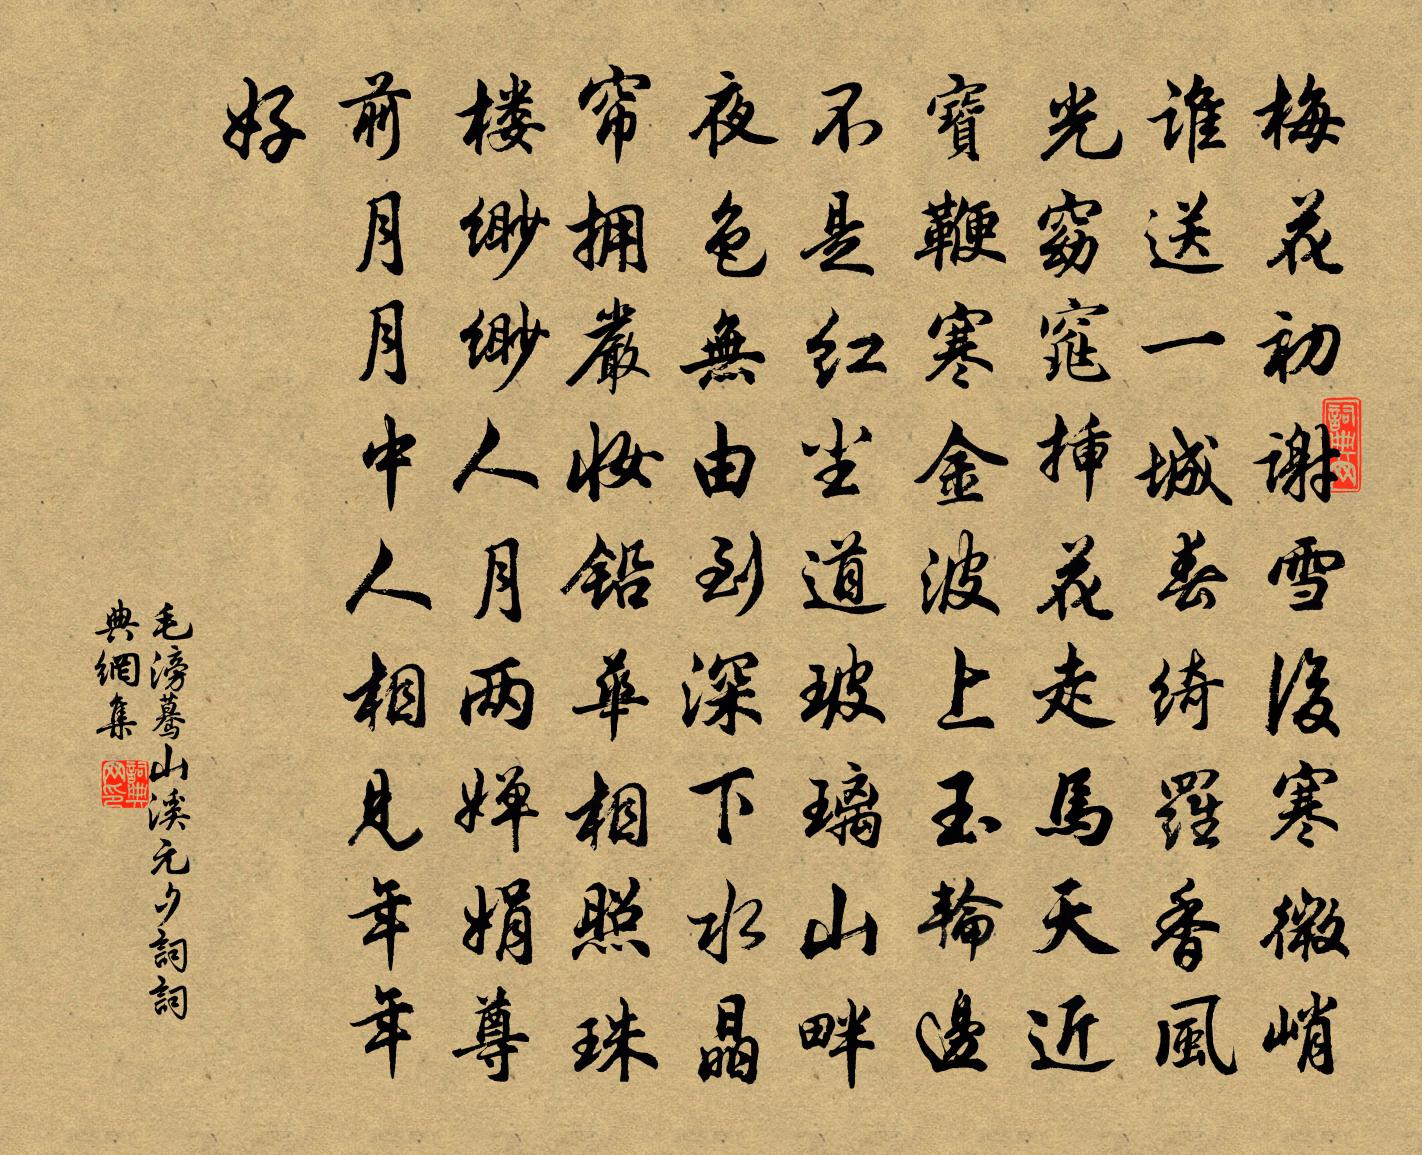 梅花初謝雪後寒微峭
誰送一城春綺羅香風
光窈窕插花走馬天近
寶鞭寒金波上玉輪邊
不是红尘道玻璃山畔
夜色無由到深下水晶
帘拥嚴妝鉛華相照珠
楼缈缈人月两婵娟尊
前月月中人相見年年
好
毛滂驀山溪元夕詞詞
典網集
詞典网
詞典网印